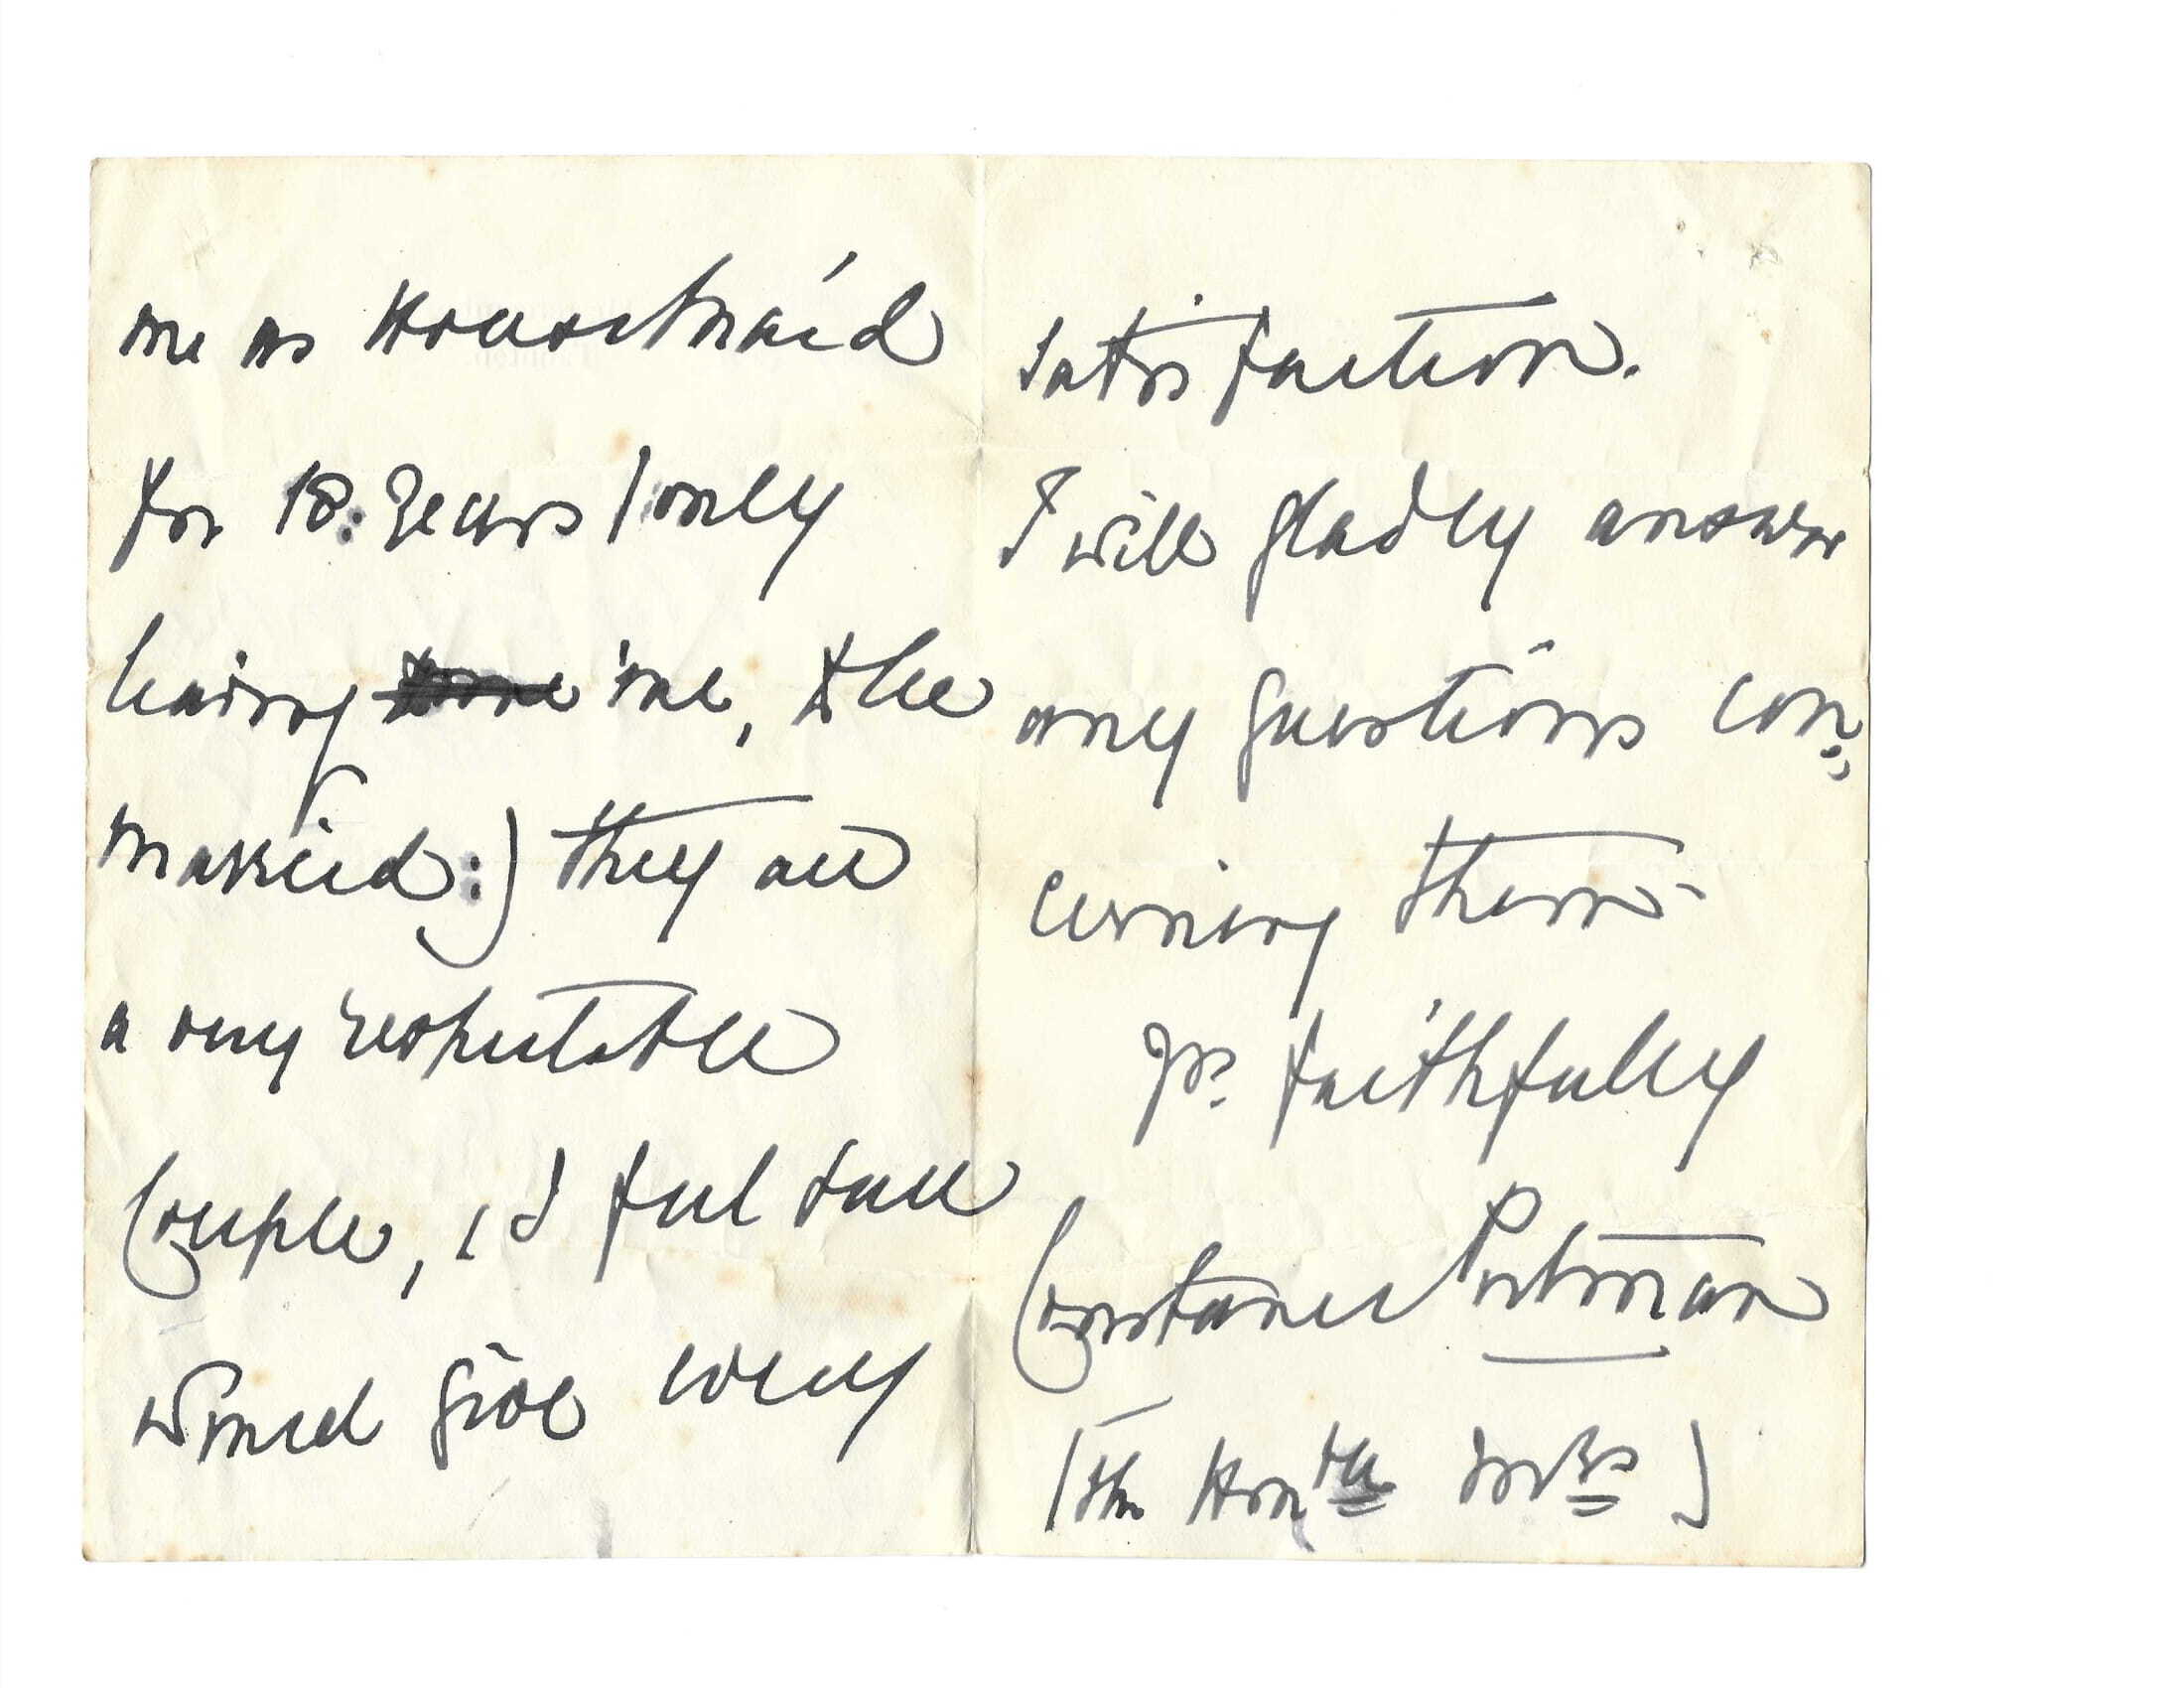 me as Housemaid
for 18: years (only
leaving me, to be
married:) they are
a very respectable
Couple, feel sure
would give every
satisfaction.
I will gladly answer
any questions con:
cerning them-
yrs. faithfully
Constance Portman
(the Honble Mrs)